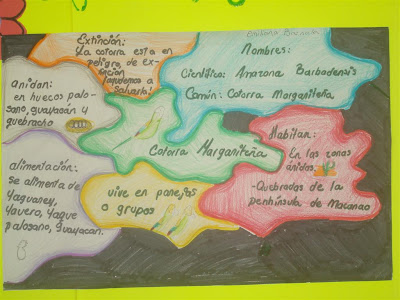 Extinción:
La cotorra esta en
peligro de ex-
tinción
¡ayudemos a
salvarla!
Nombres:
Cientifico: Amazona Barbadensis
Común: Cotorra Margariteña
Anidan:
en huecos palo-
sano, guayacan y
quebracho
Cotorra Margariteña
Habitan:
En las zonas
áridas
-Quebradas de la
península de Macanao
alimentación:
se alimenta de
Yaguarey,
Yavero, Yaque
palosano, Guayacan.
vive en parejas
o grupos